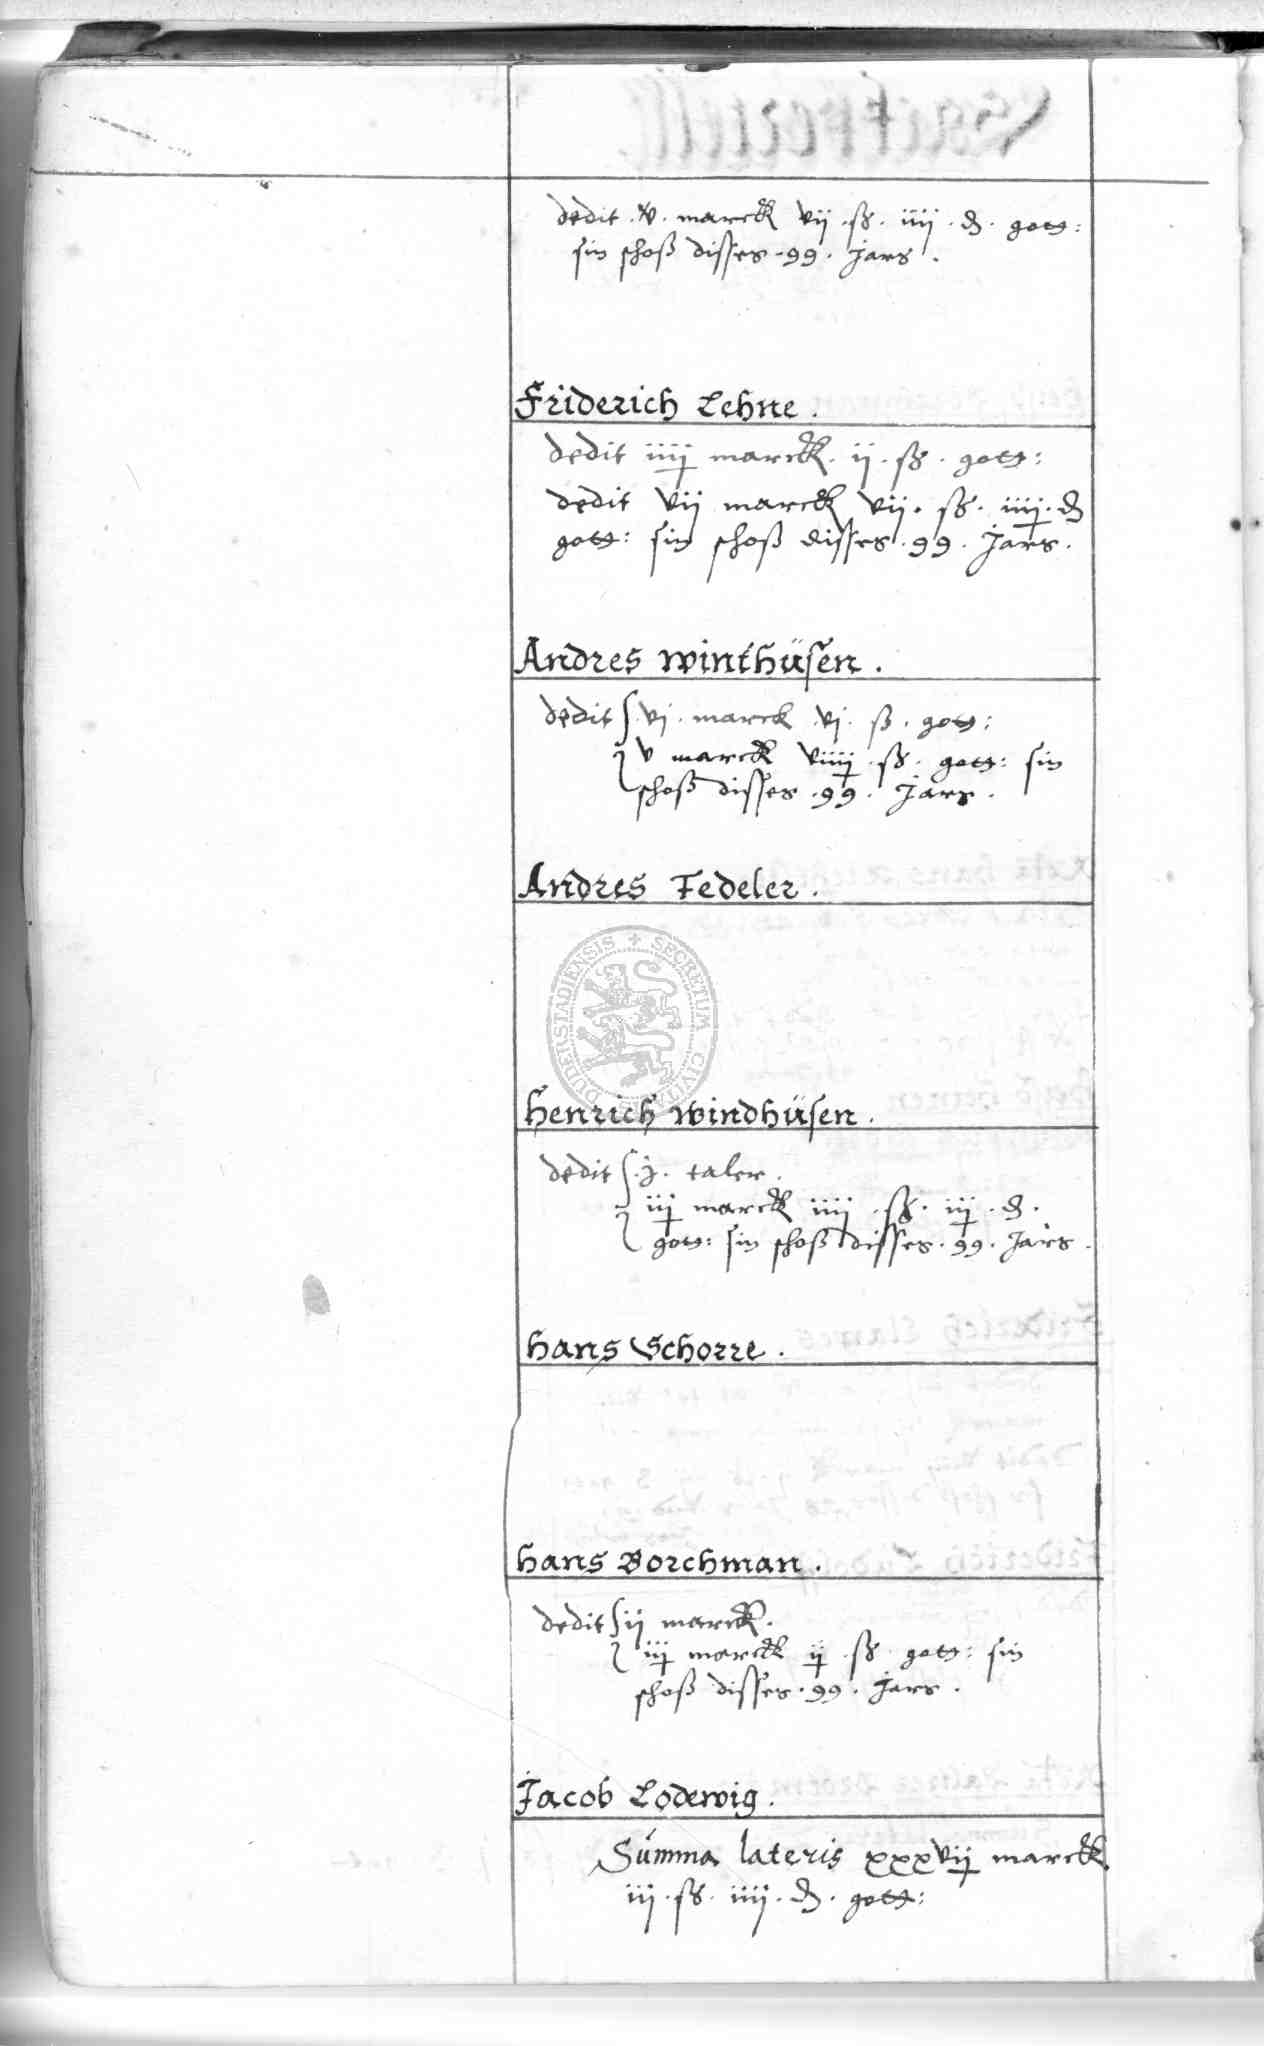 dedit . v . marck vii . ß . iiij . d . gott:
sin schoß disses . 99 . Jars .
Friderich Lehne .
dedit iiij marck . ij . ß . gott:
dedit vii marck vii . ß . iiij . d
gott: sin schoß disses . 99 . Jars .
Andres Winthüsen .
dedit . vj . marck . vj . ß . gott:
v marck viiij . ß . gott: sin
schoß disses . 99 . Jars .
Andres Tedeler .
SECRETUM CIVITATIS DUDERSTADIENSIS
Henrich Windhüsen .
dedit . j . taler .
iij marck iiij . ß . iij . d .
gott: sin schoß disses . 99 . Jars .
Hans Schorre .
Hans Borchman .
dedit ij marck .
iij marck ij . ß gott: sin
schoß disses . 99 . Jars .
Jacob Lodewig .
Summa lateris xxxvij marck .
iij . ß . iiij . d . gott: